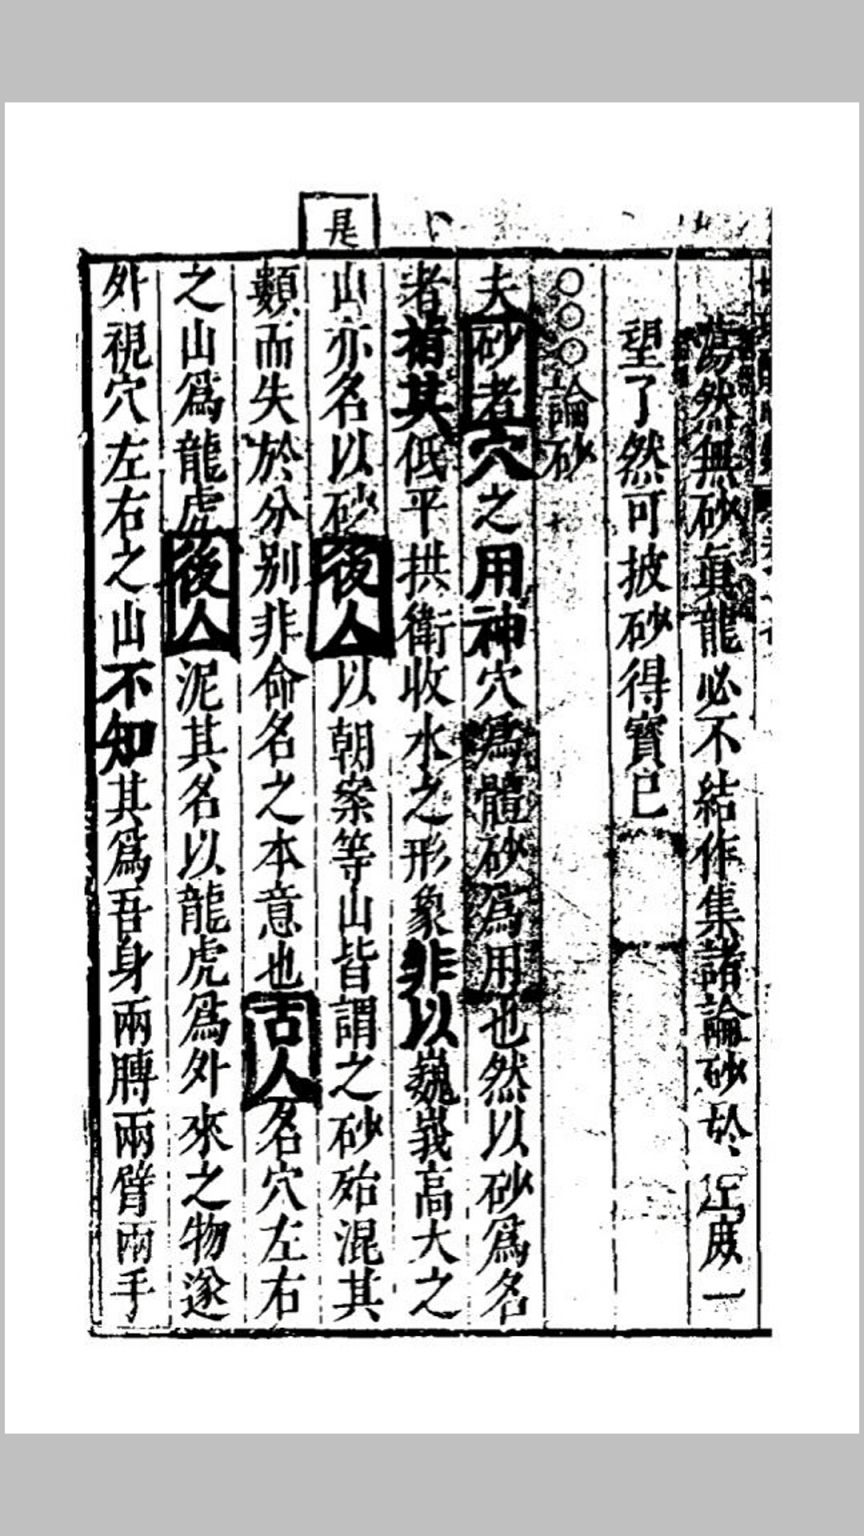 蕩然無砂眞龍必不結作集諸論砂於 度一
望了然可披砂得寶已
○○○論砂
夫砂者穴之用神穴爲體砂爲用也然以砂爲名
者指其低平拱衛收水之形象非以巍峩高大之
是
山亦名以砂後人以朝案等山皆謂之砂殆混其
類而失於分別非命名之本意也古人名穴左右
之山爲龍虎後人泥其名以龍虎爲外來之物遂
外視穴左右之山不知其爲吾身兩膊兩臂兩手